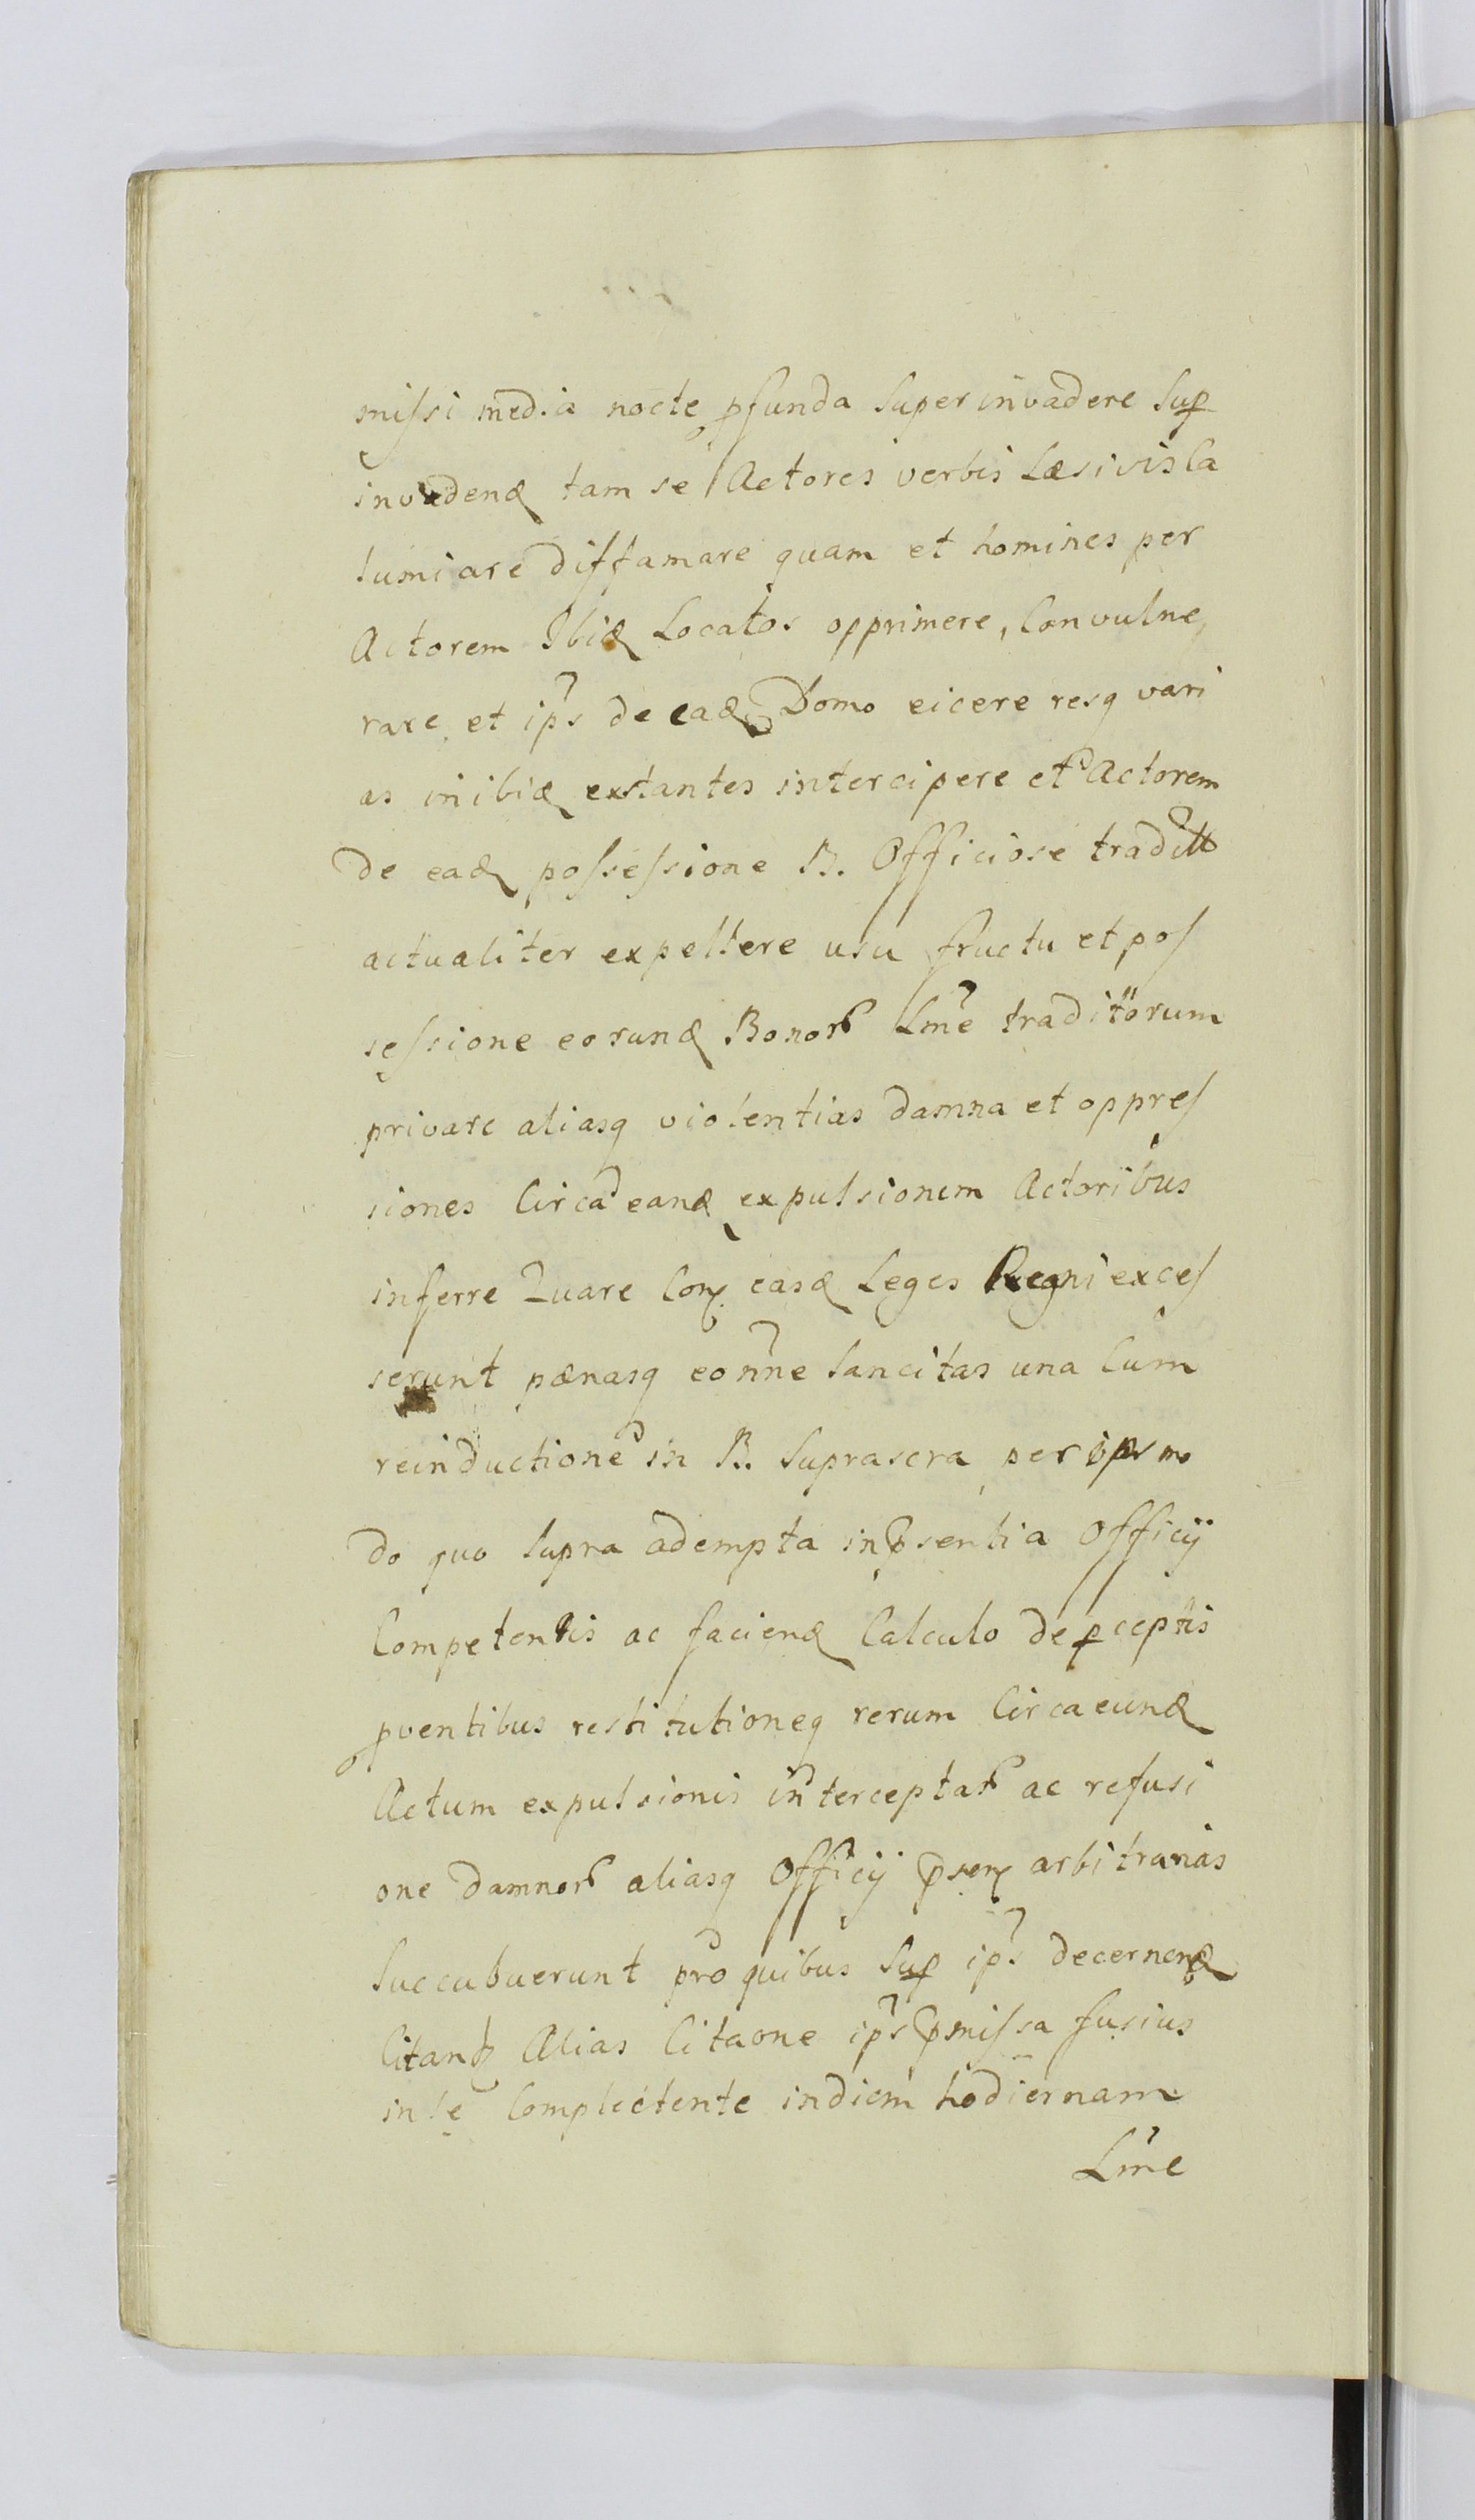 missi media nocte pfunda Super invadere Sup
invadend tam se Actores verbis Læsivis Ca
lumiare diffamare quam et homines per
Actorem Ibid Locatos opprimere, Convulne,
rare et ips de ead Domo eicere resq vari
as in ibid extantes intercipere et Actorem
de ead possessione B. Officiose tradit
actualiter expellere usu fructu et pos
sessione eorund Bonor Lme traditorum
privare aliasq violentias damna et oppres
siones Circa eand expulsionem Actoribus
inferre Quare Con easd Leges Regni exces
serunt pænasq eo nne Sancitas una Cum
reinductione in B. Suprascra per ips mo
do quo Supra adempta in psentia Officij
Competentis ac faciend Calculo de pceptis
pventibus restitutioneq rerum Circa eund
Actum expulsionis interceptar ac refusi
one damnor aliasq Officij psen arbitrarias
Succubuerunt pro quibus Sup ips decernend
Citant Alias Citaone ips pmissa fusius
in Se Complectente in diem hodiernam
Lme